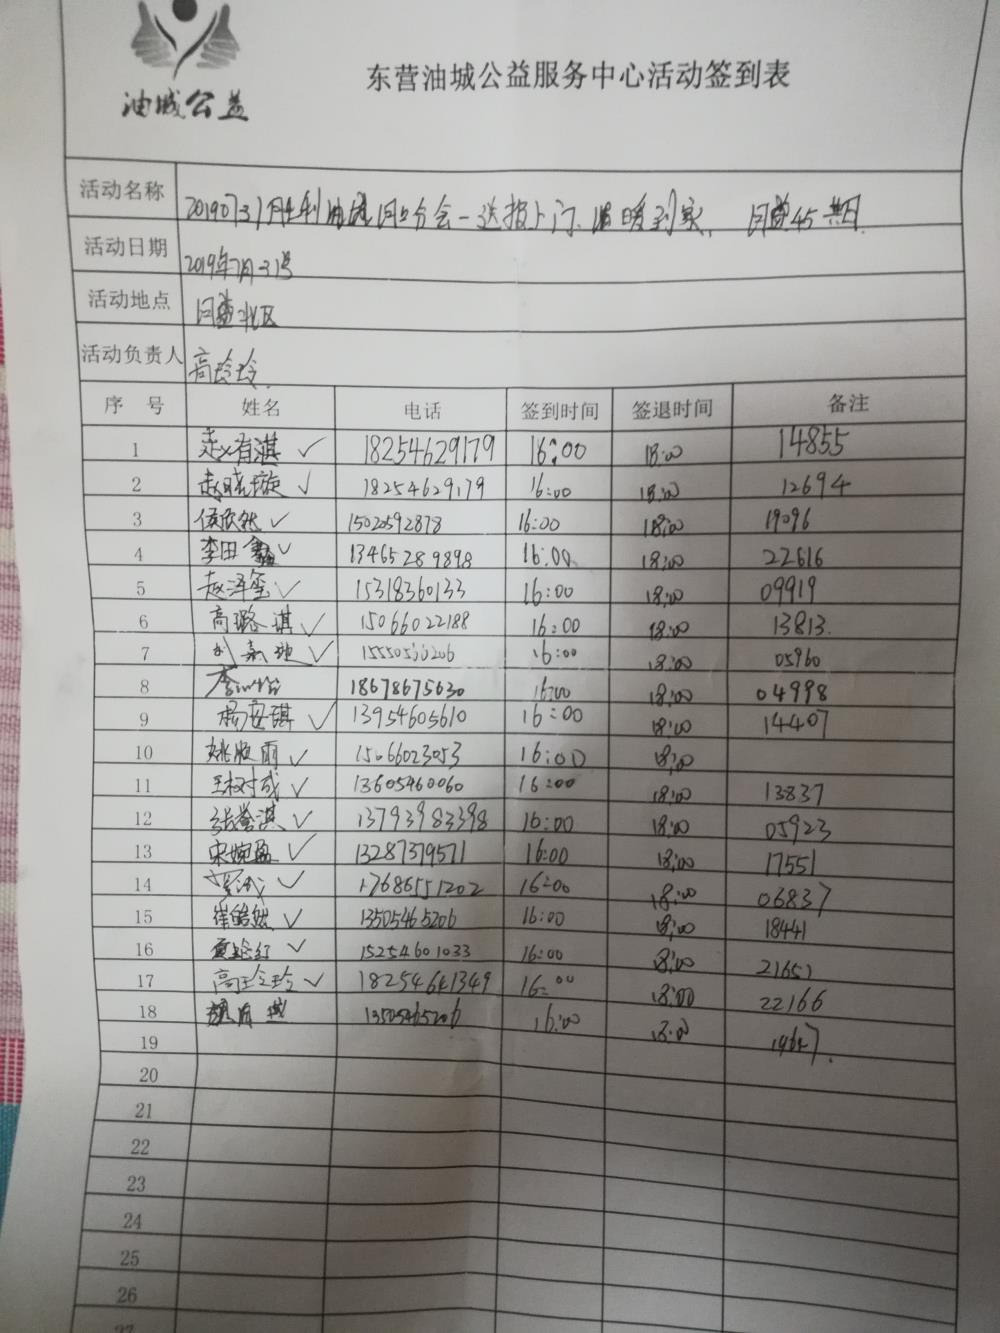 油城公益
东营油城公益服务中心活动签到表
活动名称 20190731 胜利油城同上分会一送报上门、温暖到家, 45期
活动日期 2019年7月31号
活动地点 北区
活动负责人 高玲玲
序 号 姓名 电话 签到时间 签退时间 备注
1 赵有淇 ✓ 18254629179 16:00 18:00 14855
2 赵晓璇 ✓ 18254629179 16:00 18:00 12694
3 侯依然 ✓ 1502592878 16:00 18:00 19096
4 李田鑫 ✓ 13465289898 16:00 18:00 22616
5 赵泽玺 ✓ 15318360133 16:00 18:00 09919
6 高璐淇 ✓ 15066022188 16:00 18:00 13813.
7 ✓ 16:00 18:00 05960
8 李 18678675630 16:00 18:00 04998
9 杨安琪 ✓ 13954605610 16:00 18:00 14407
10 姚 雨 ✓ 15066023053 16:00 18:00
11 王树成 ✓ 13605460060 16:00 18:00 13837
12 张誉淇 ✓ 13793983398 16:00 18:00 05923
13 宋婉盈 ✓ 13287379571 16:00 18:00 17551
14 ✓ 17686551202 16:00 18:00 06837
15 崔皓然 ✓ 13505465206 16:00 18:00 18441
16 ✓ 15254601033 16:00 18:00 21651
17 高玲玲 ✓ 18254641349 16:00 18:00 22166
18 13505465206 16:00 18:00
19
20
21
22
23
24
25
26
27